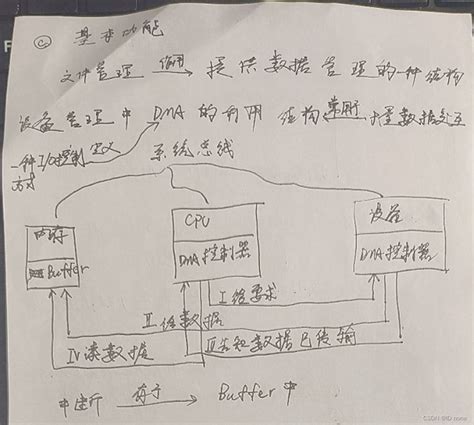 © 基本功能
文件管理 作用 提供数据管理的一种结构
设备管理中 DMA的利用 结构 常用 大量数据交互
一种I/O控制方式 定义
系统总线
内存 CPU 设备
Buffer DMA控制器 DMA控制器
I 给要求
II 给数据
III 告知数据已传输
IV 读数据
中断 存于 Buffer中
CSDN @ID